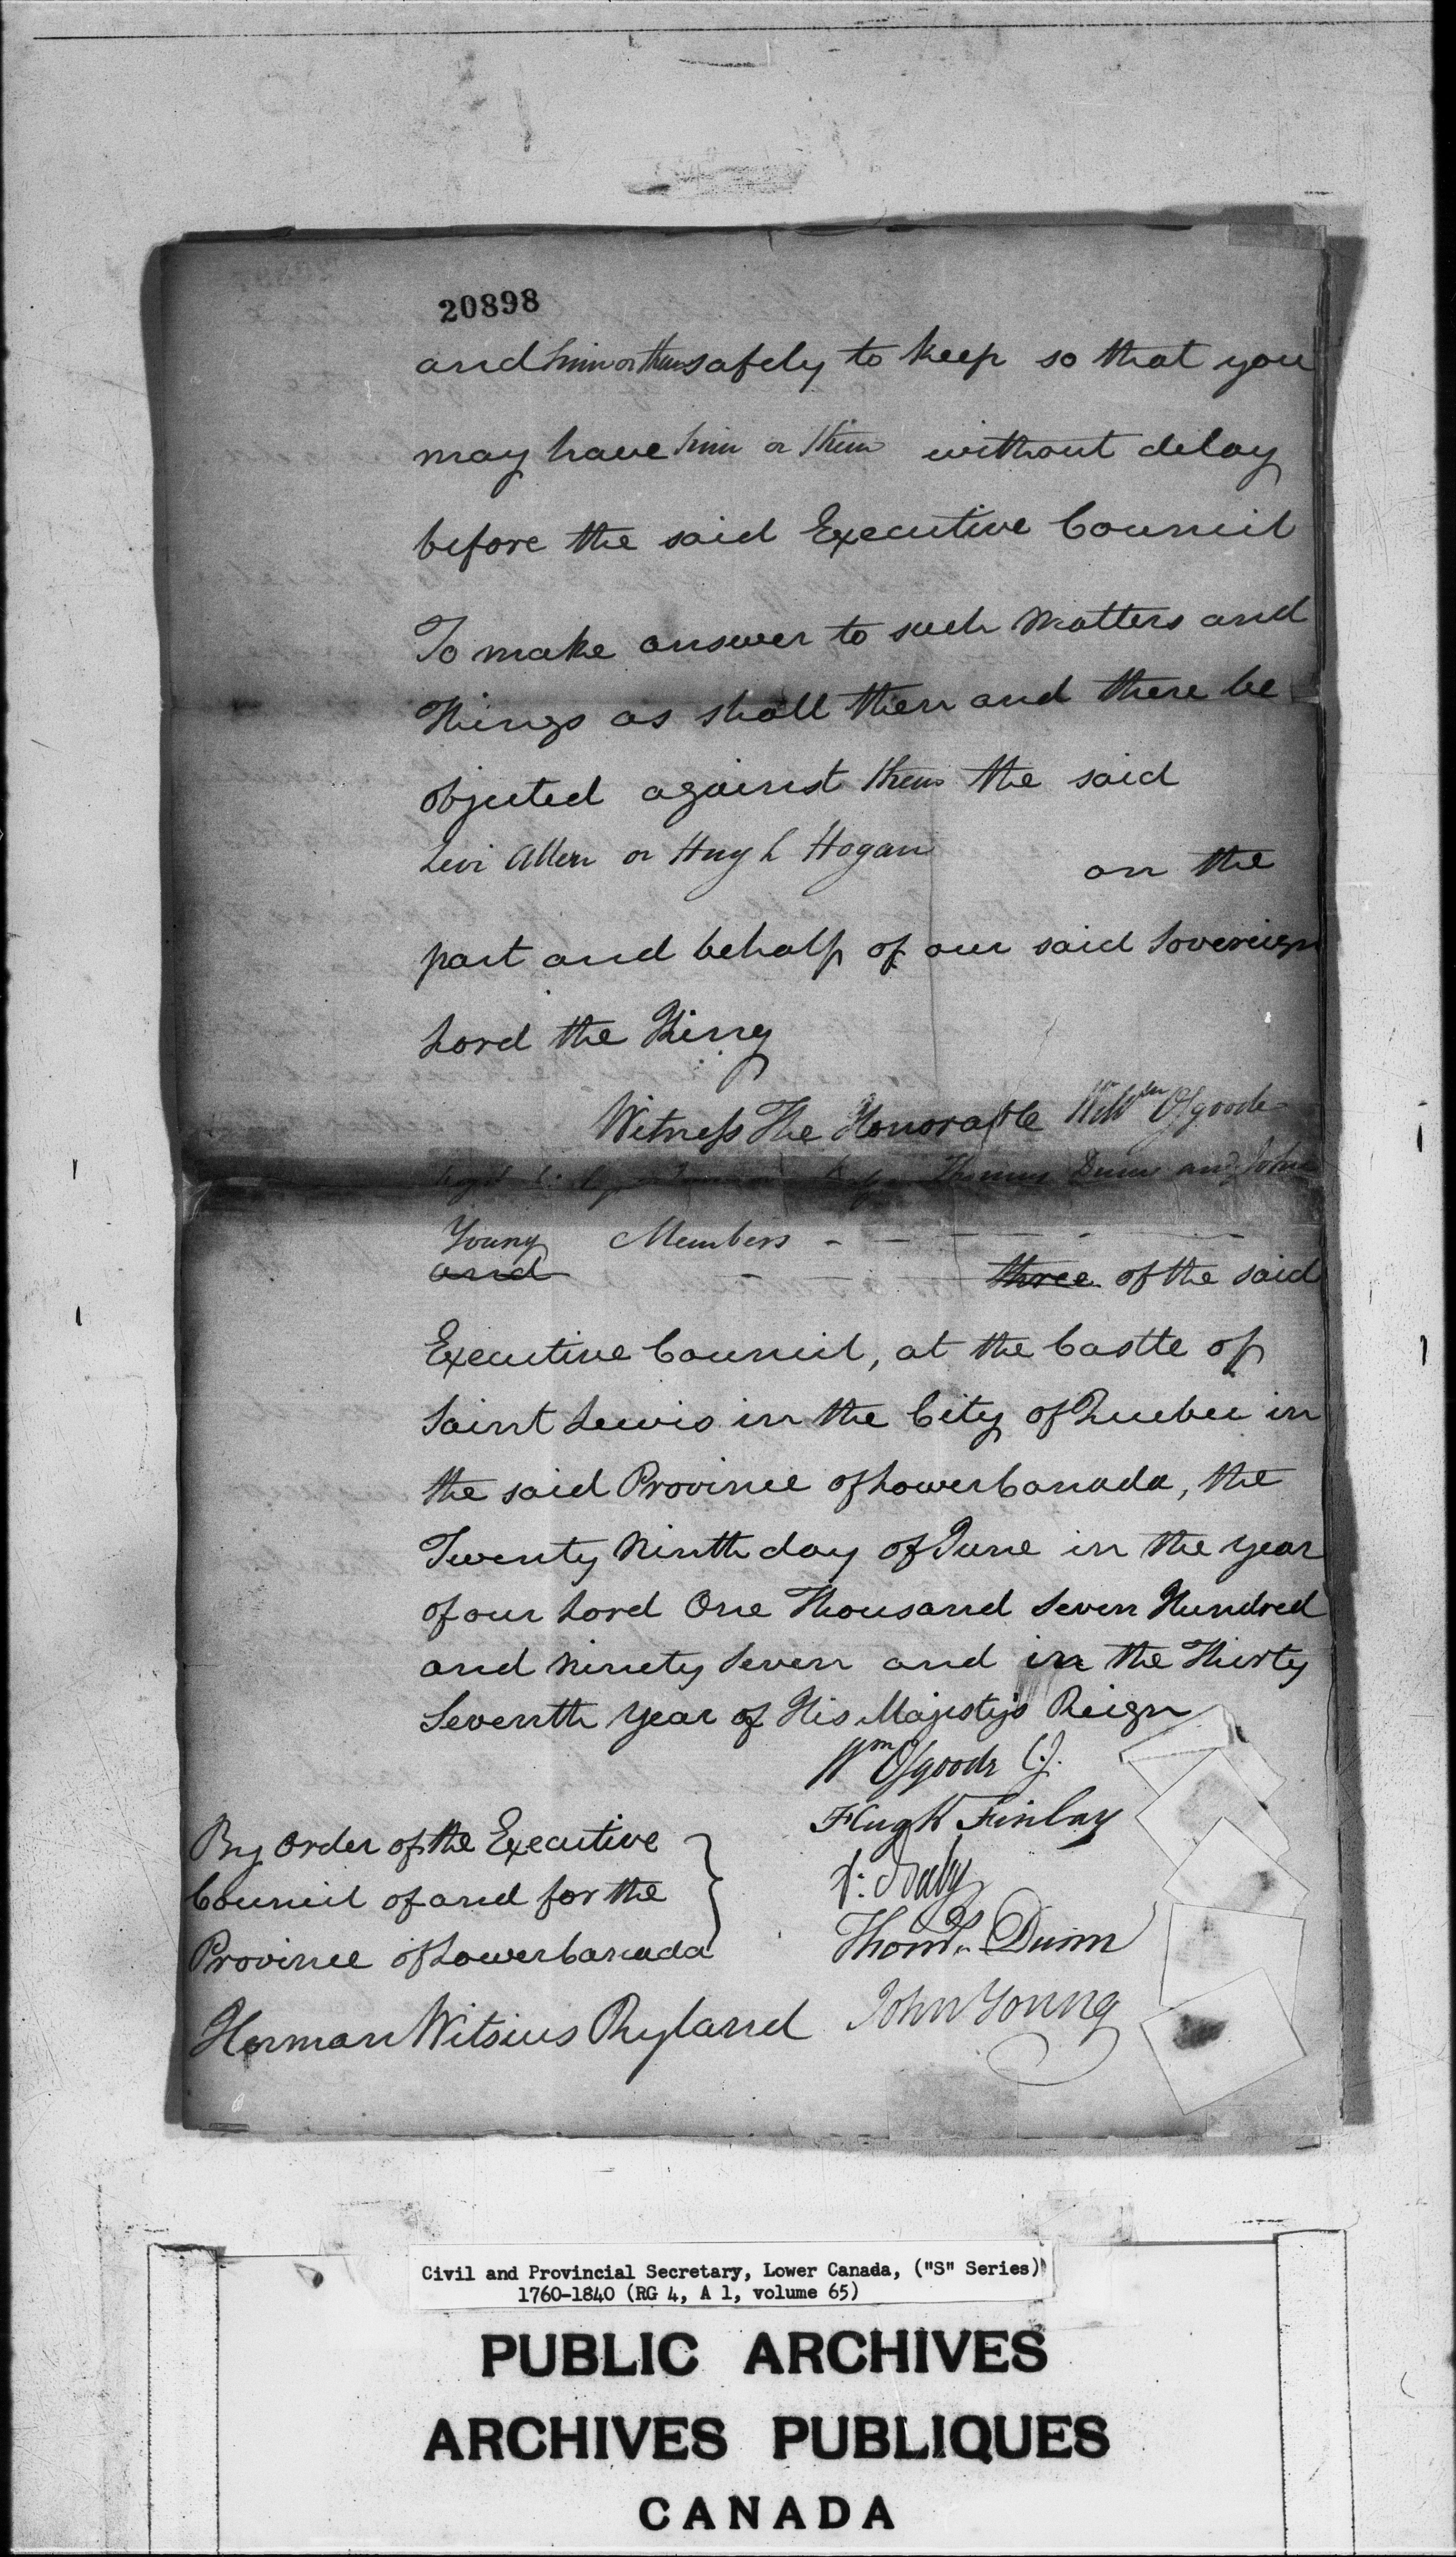 20898
and him or them safely to keep so that you
may have him or them without delay
before the said Executive Council
To make answer to such Matters and
Things as shall then and there be
objected against them the said
Levi Allen or Hugh Hogan
on the
part and behalf of our said Sovereign
Lord the King
Witness The Honorable Willm Osgoode
Thomas Dunn and John
Young Members - - - - - -
and - - three of the said
Executive Council, at the Castle of
Saint Lewis in the City of Quebec in
the said Province of Lower Canada, the
Twenty Ninth day of June in the year
of our Lord One Thousand Seven Hundred
and Ninety Seven and in the Thirty
Seventh Year of His Majesty's Reign
Wm Osgoode C.J.
Hugh Finlay
F: Baby
Thoms. Dunn
John Young
By order of the Executive
Council of and for the
Province of Lower Canada
Herman Witsius Ryland
Civil and Provincial Secretary, Lower Canada, ("S" Series)
1760-1840 (RG 4, A 1, volume 65)
PUBLIC ARCHIVES
ARCHIVES PUBLIQUES
CANADA